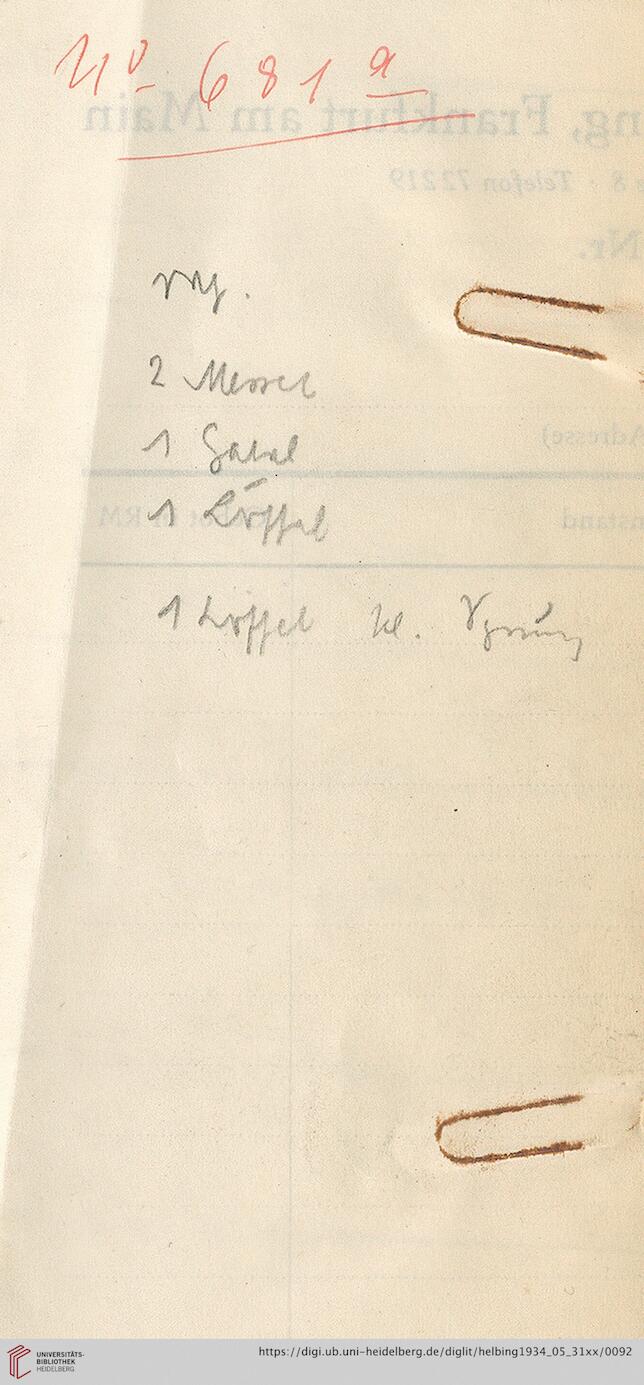 No 681 a
2 Messer
1 Gabel
1 Löffel
1 Löffel kl.
ng, Frankfurt am Main
e 8 · Telefon 72219
Nr.
Adresse)
nstand
RM
UNIVERSITÄTS-
BIBLIOTHEK
HEIDELBERG
https://digi.ub.uni-heidelberg.de/diglit/helbing1934_05_31xx/0092